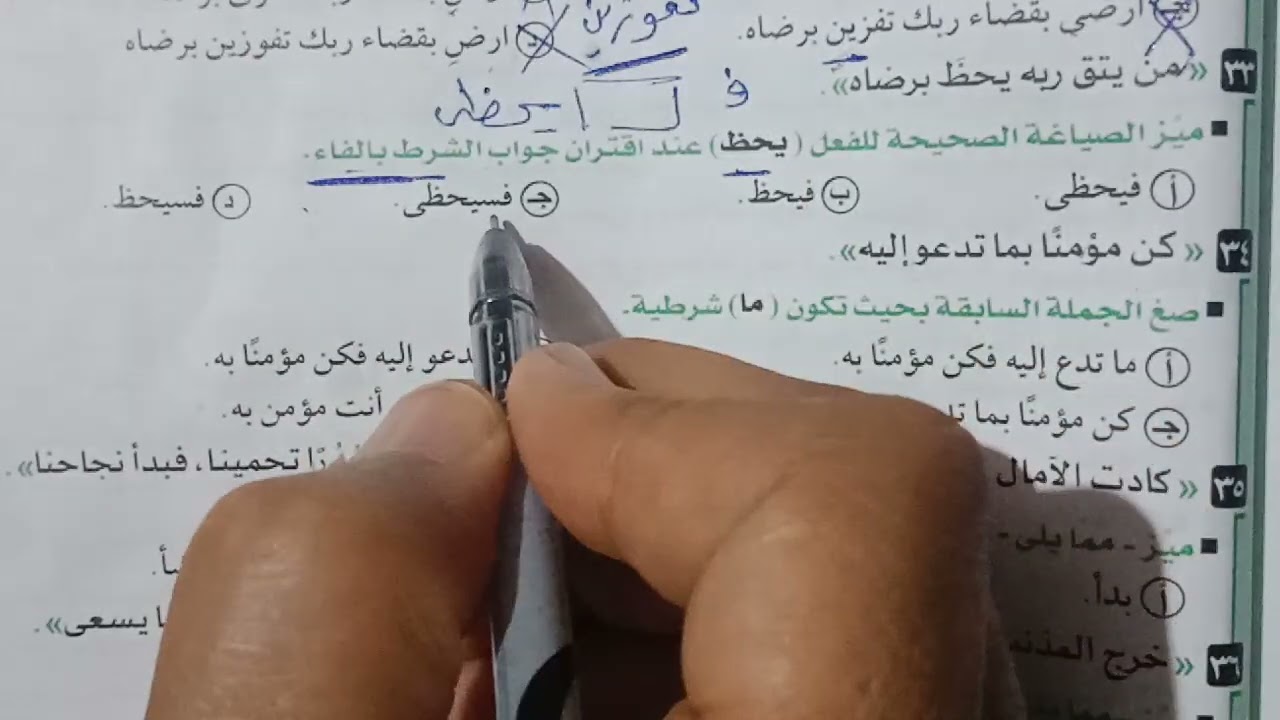 ارضي بقضاء ربك تفزين برضاه.
تفوزين
د ارضِ بقضاء ربك تفوزين برضاه
٣٣ «من يتق ربه يحظَ برضاه».
ف
يحظى
■ ميّز الصياغة الصحيحة للفعل (يحظ) عند اقتران جواب الشرط بالفاء.
أ فيحظى. ب فيحظَ. جـ فسيحظى. د فسيحظ.
٣٤ «كن مؤمنًا بما تدعو إليه».
■ صغ الجملة السابقة بحيث تكون (ما) شرطية.
أ ما تدع إليه فكن مؤمنًا به. إليه فكن مؤمنًا به.
جـ كن مؤمنًا بما أنت مؤمن به.
٣٥ «كادت الآمال تحمينا، فبدأ نجاحنا».
■ ميّز - مما يلي -
أ بدأ.
٣٦ «خرج يسعى».